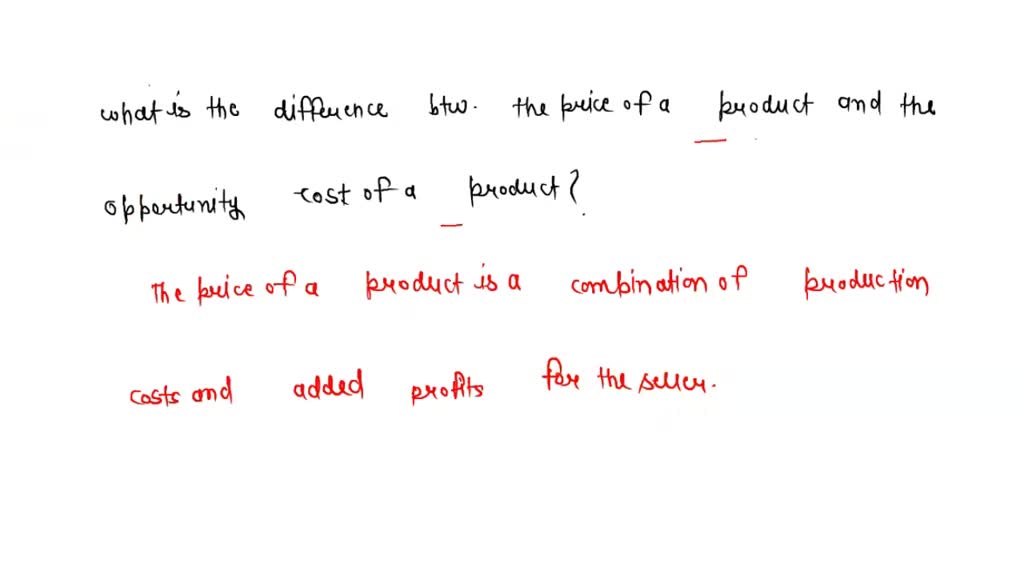 what is the difference btw. the price of a product and the
opportunity cost of a product?
The price of a product is a combination of production
costs and added profits for the seller.